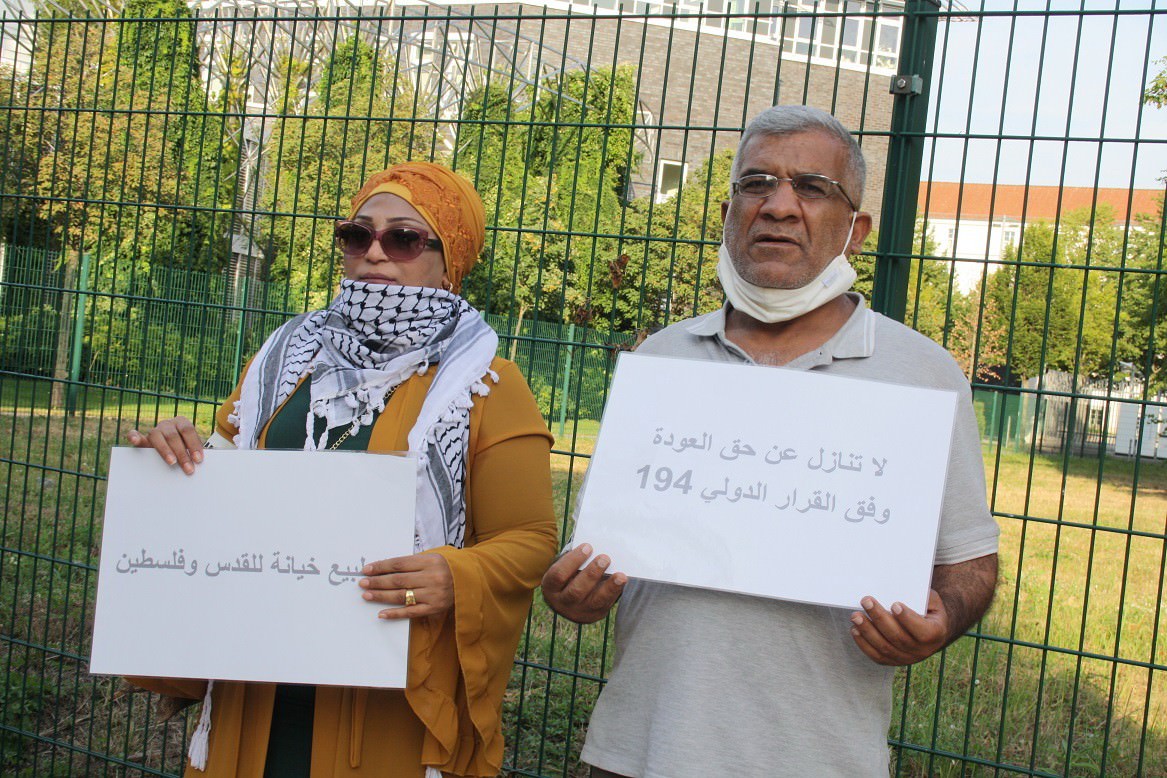 لا تنازل عن حق العودة
وفق القرار الدولي 194
خيانة للقدس وفلسطين